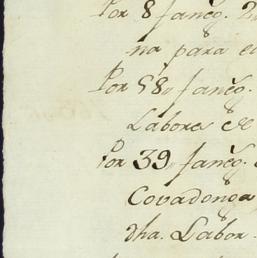 Por 8 faneg.
na para
Por 58 faneg.
Labores de
Por 39 faneg.
Covadonga
dha. Labor